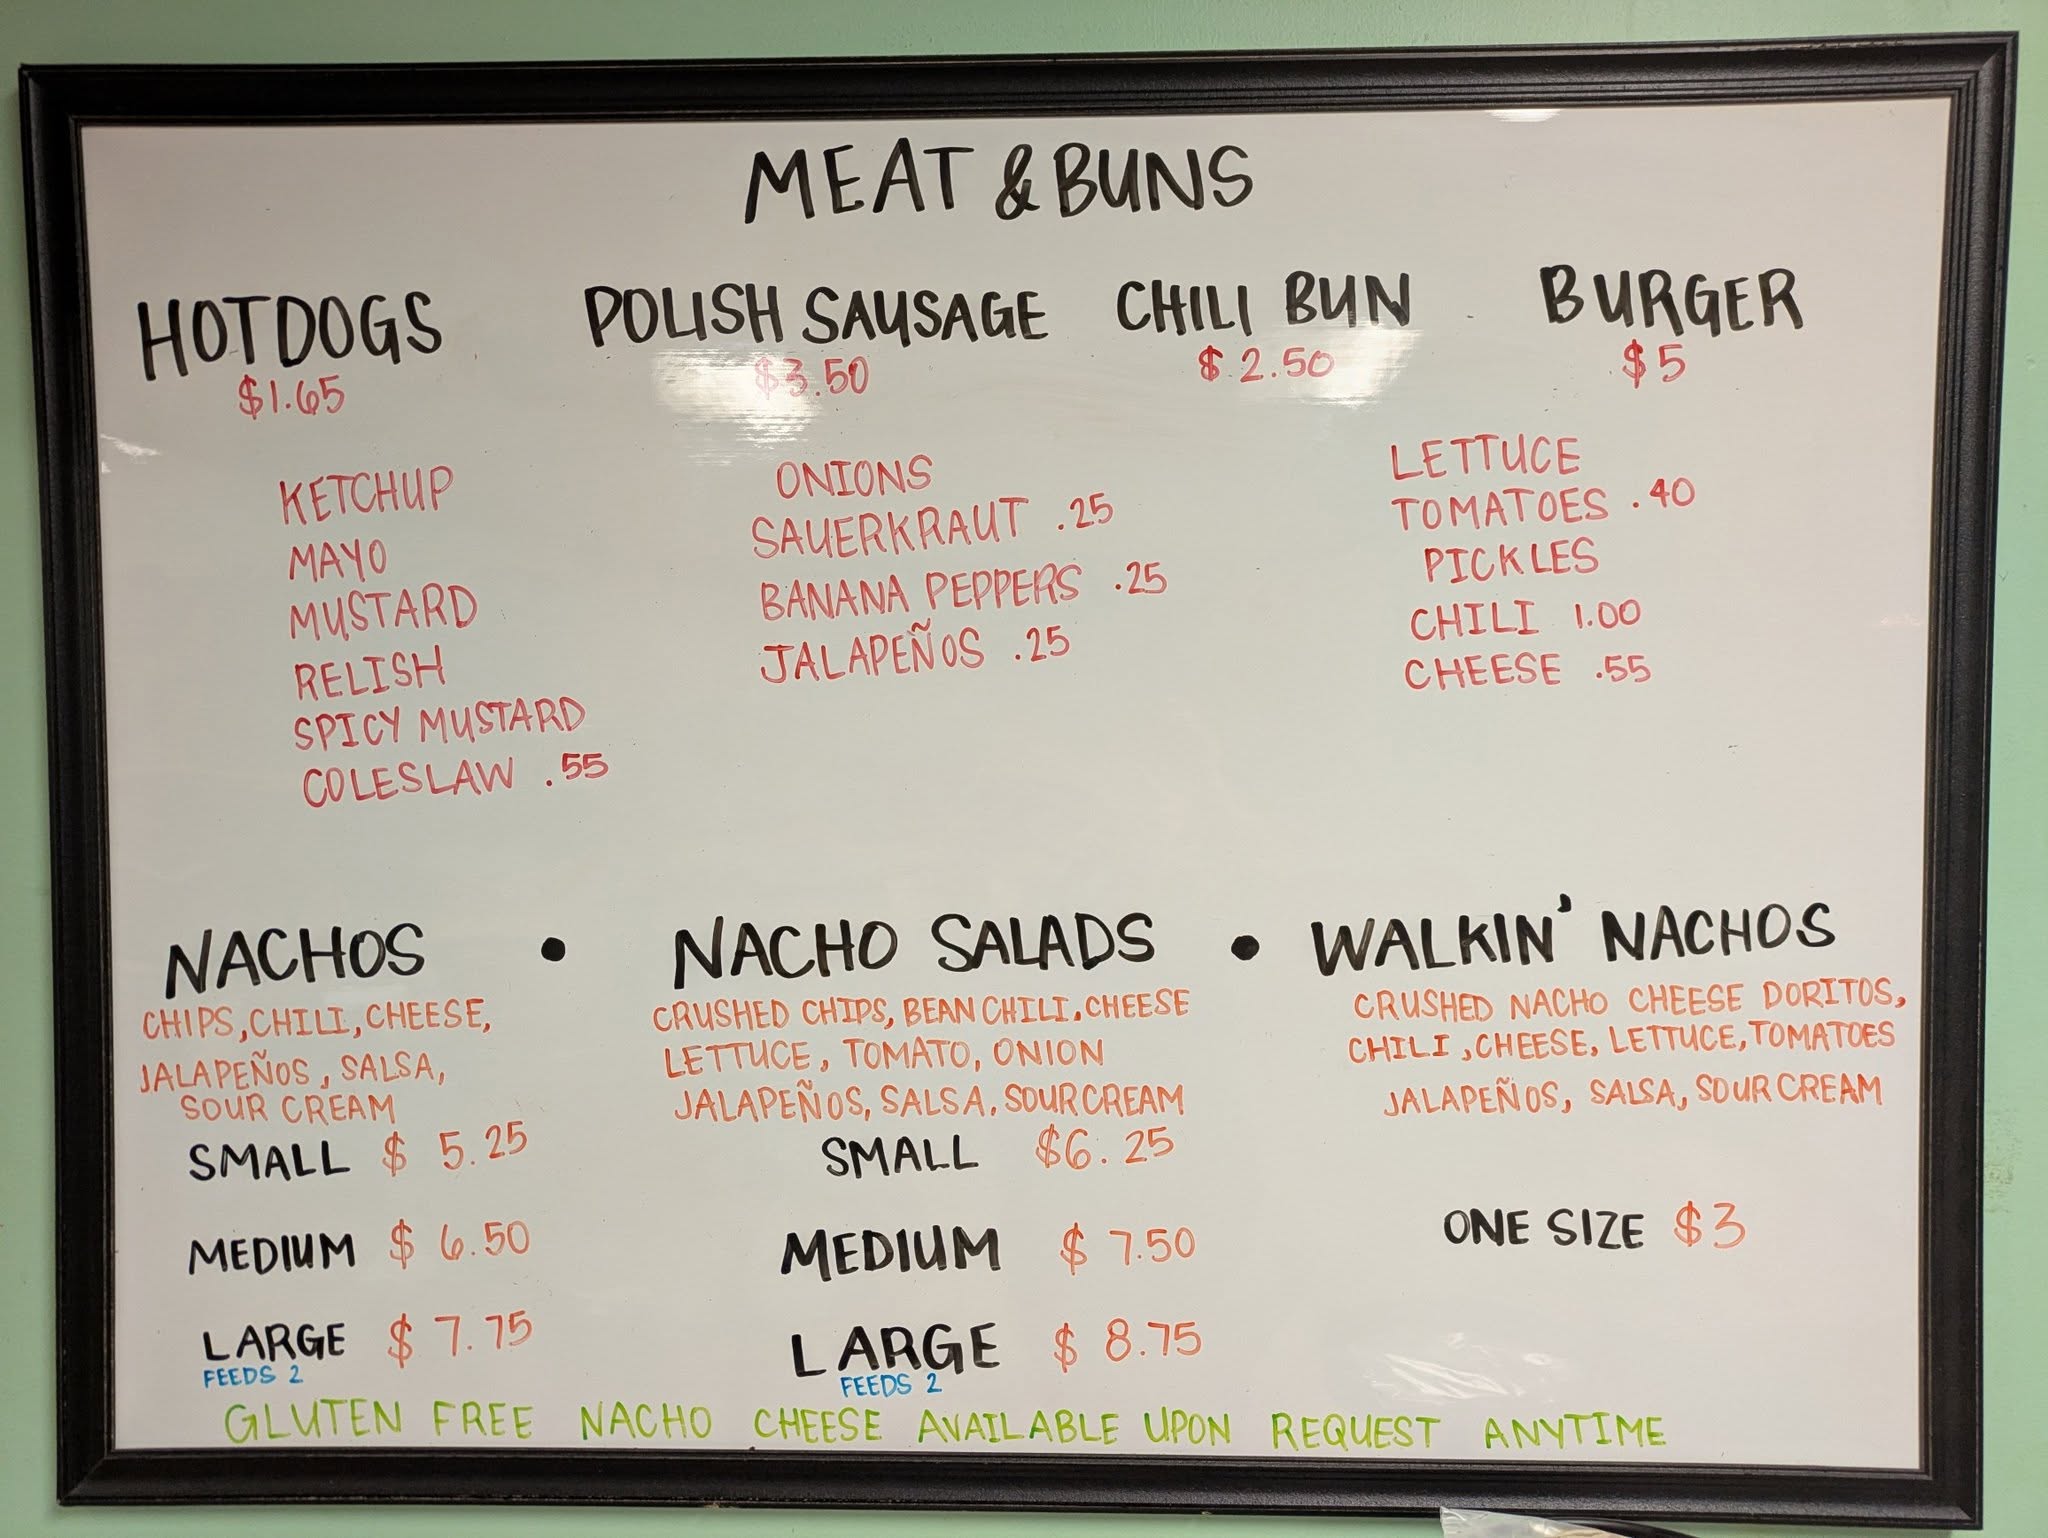 MEAT & BUNS
HOTDOGS
$1.65
KETCHUP
MAYO
MUSTARD
RELISH
SPICY MUSTARD
COLESLAW .55
POLISH SAUSAGE
$3.50
ONIONS
SAUERKRAUT .25
BANANA PEPPERS .25
JALAPEÑOS .25
CHILI BUN
$2.50
BURGER
$5
LETTUCE
TOMATOES .40
PICKLES
CHILI 1.00
CHEESE .55
NACHOS •
CHIPS, CHILI, CHEESE,
JALAPEÑOS, SALSA,
SOUR CREAM
SMALL $ 5.25
MEDIUM $ 6.50
LARGE $ 7.75
FEEDS 2
NACHO SALADS •
CRUSHED CHIPS, BEAN CHILI, CHEESE
LETTUCE, TOMATO, ONION
JALAPEÑOS, SALSA, SOUR CREAM
SMALL $6.25
MEDIUM $ 7.50
LARGE $ 8.75
FEEDS 2
WALKIN' NACHOS
CRUSHED NACHO CHEESE DORITOS,
CHILI, CHEESE, LETTUCE, TOMATOES
JALAPEÑOS, SALSA, SOUR CREAM
ONE SIZE $3
GLUTEN FREE NACHO CHEESE AVAILABLE UPON REQUEST ANYTIME